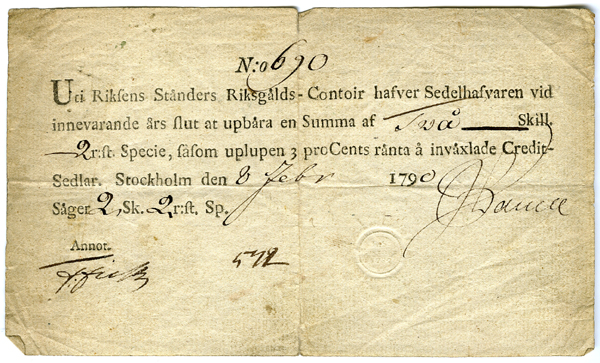 N:o 690
Uti Riksens Ständers Riksgälds-Contoir hafver Sedelhafvaren vid
innevarande års slut at upbära en Summa af Två Skill.
2 r:st. Specie, såsom uplupen 3 proCents ränta å invåxlade Credit-
Sedlar. Stockholm den 8 Febr 1790
Säger 2 Sk. 2 r:st. Sp.
Annot.
572